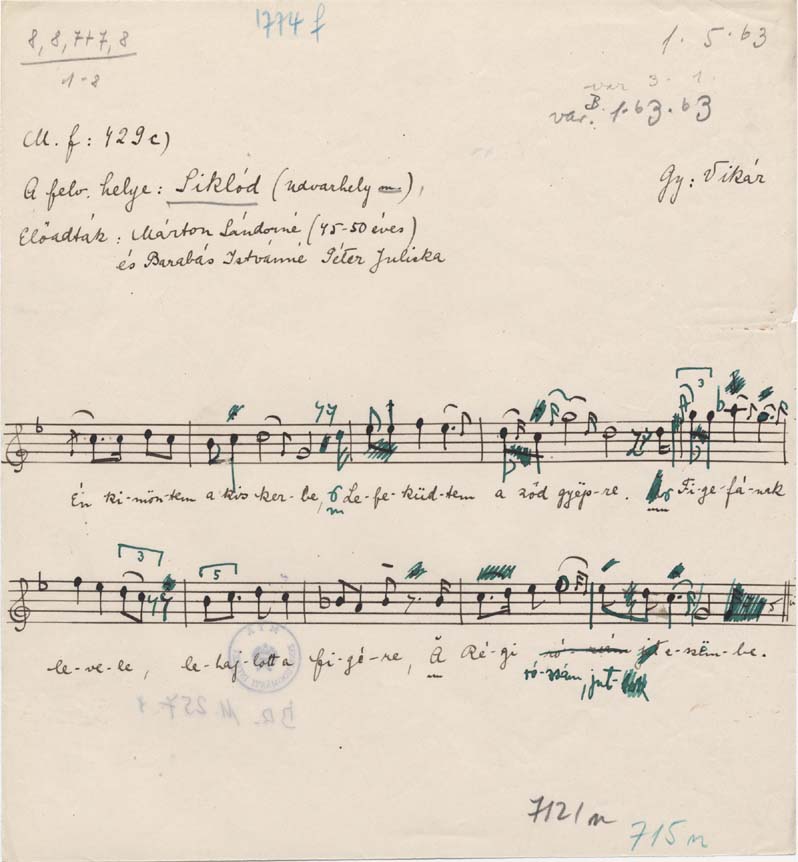 1774 f
8, 8, 7+7, 8
1-8
1. 5. 63
var 3. 1.
var. B. 1.63.63
M. f: 429c)
A felv. helye: Siklód (Udvarhely m),
Gy: Vikár
Előadták: Márton Sándorné (45-50 éves)
és Barabás Istvánné Péter Juliska
3
Én ki-möntem a kis ker-be, Le-fe-küd-tem a zöd gyëp-re. Fi-ge-fá-nak
3
5
le-ve-le, le-haj-lott a fi-gé-re, A Ré-gi ró-zsám jut e-szëm-be.
ró-zsám, jut-
BR. M. 257
7121 n
715 n